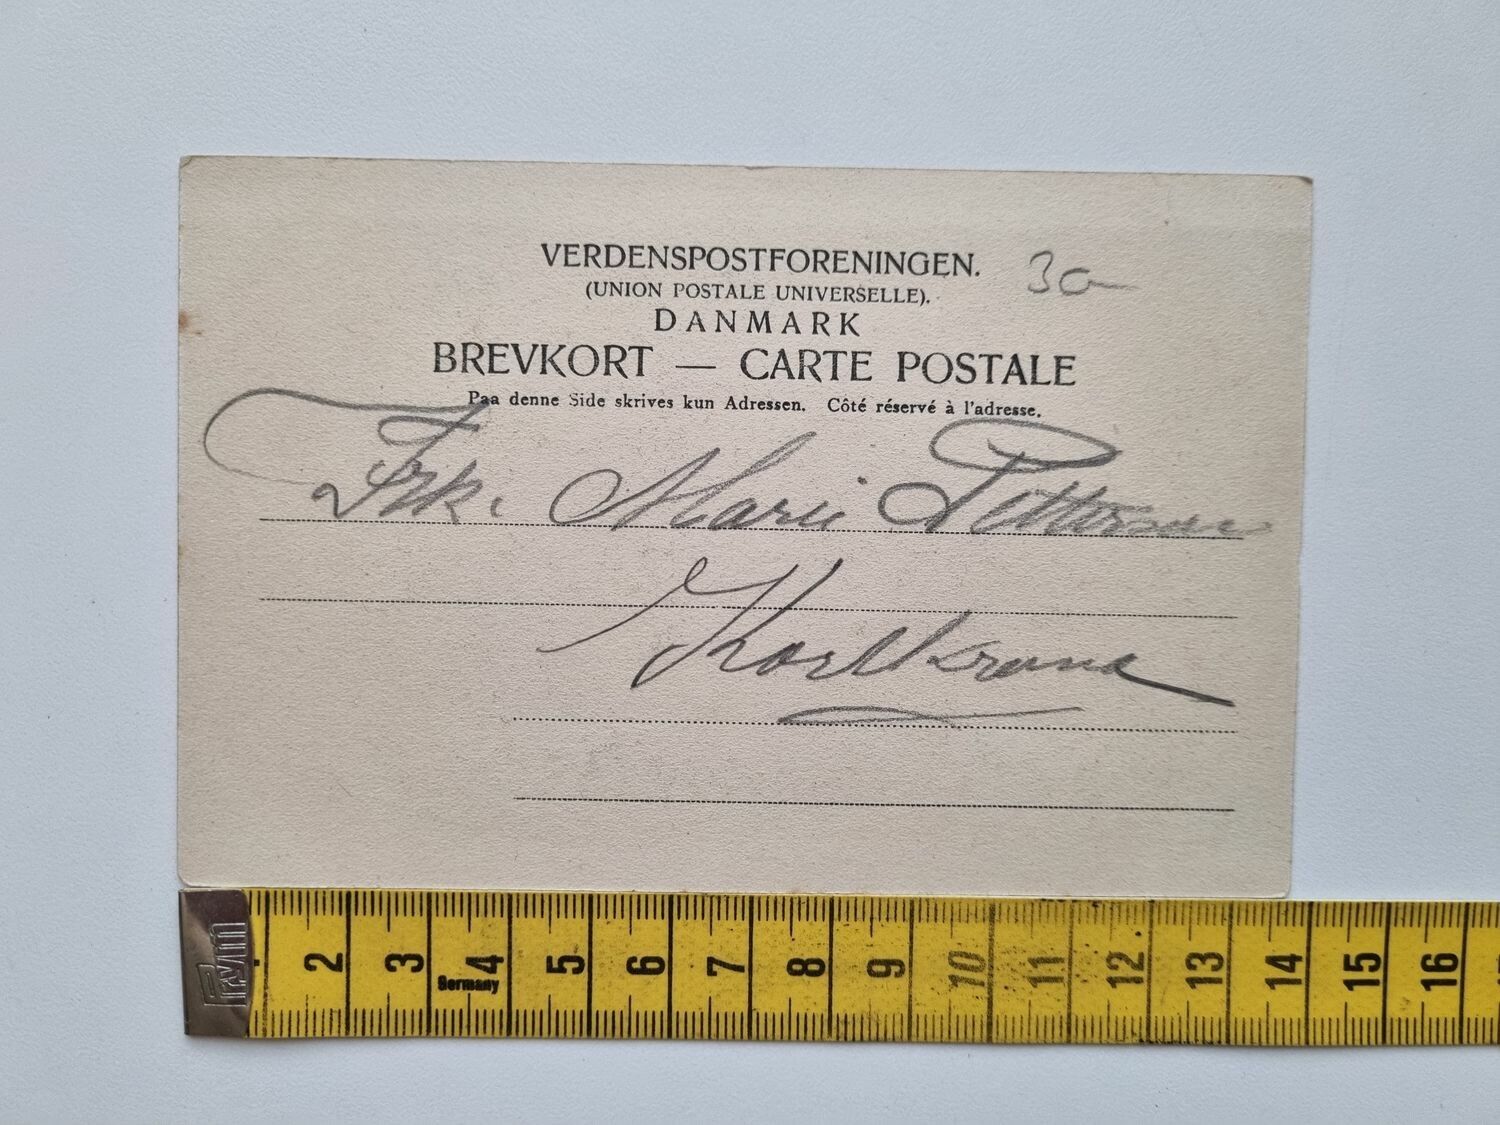 VERDENSPOSTFORENINGEN.
30
(UNION POSTALE UNIVERSELLE).
DANMARK
BREVKORT — CARTE POSTALE
Paa denne Side skrives kun Adressen. Côté réservé à l'adresse.
Frk. Marie Pettersen
Korlkrona
Prym
2 3 4 5 6 7 8 9 10 11 12 13 14 15 16
Germany